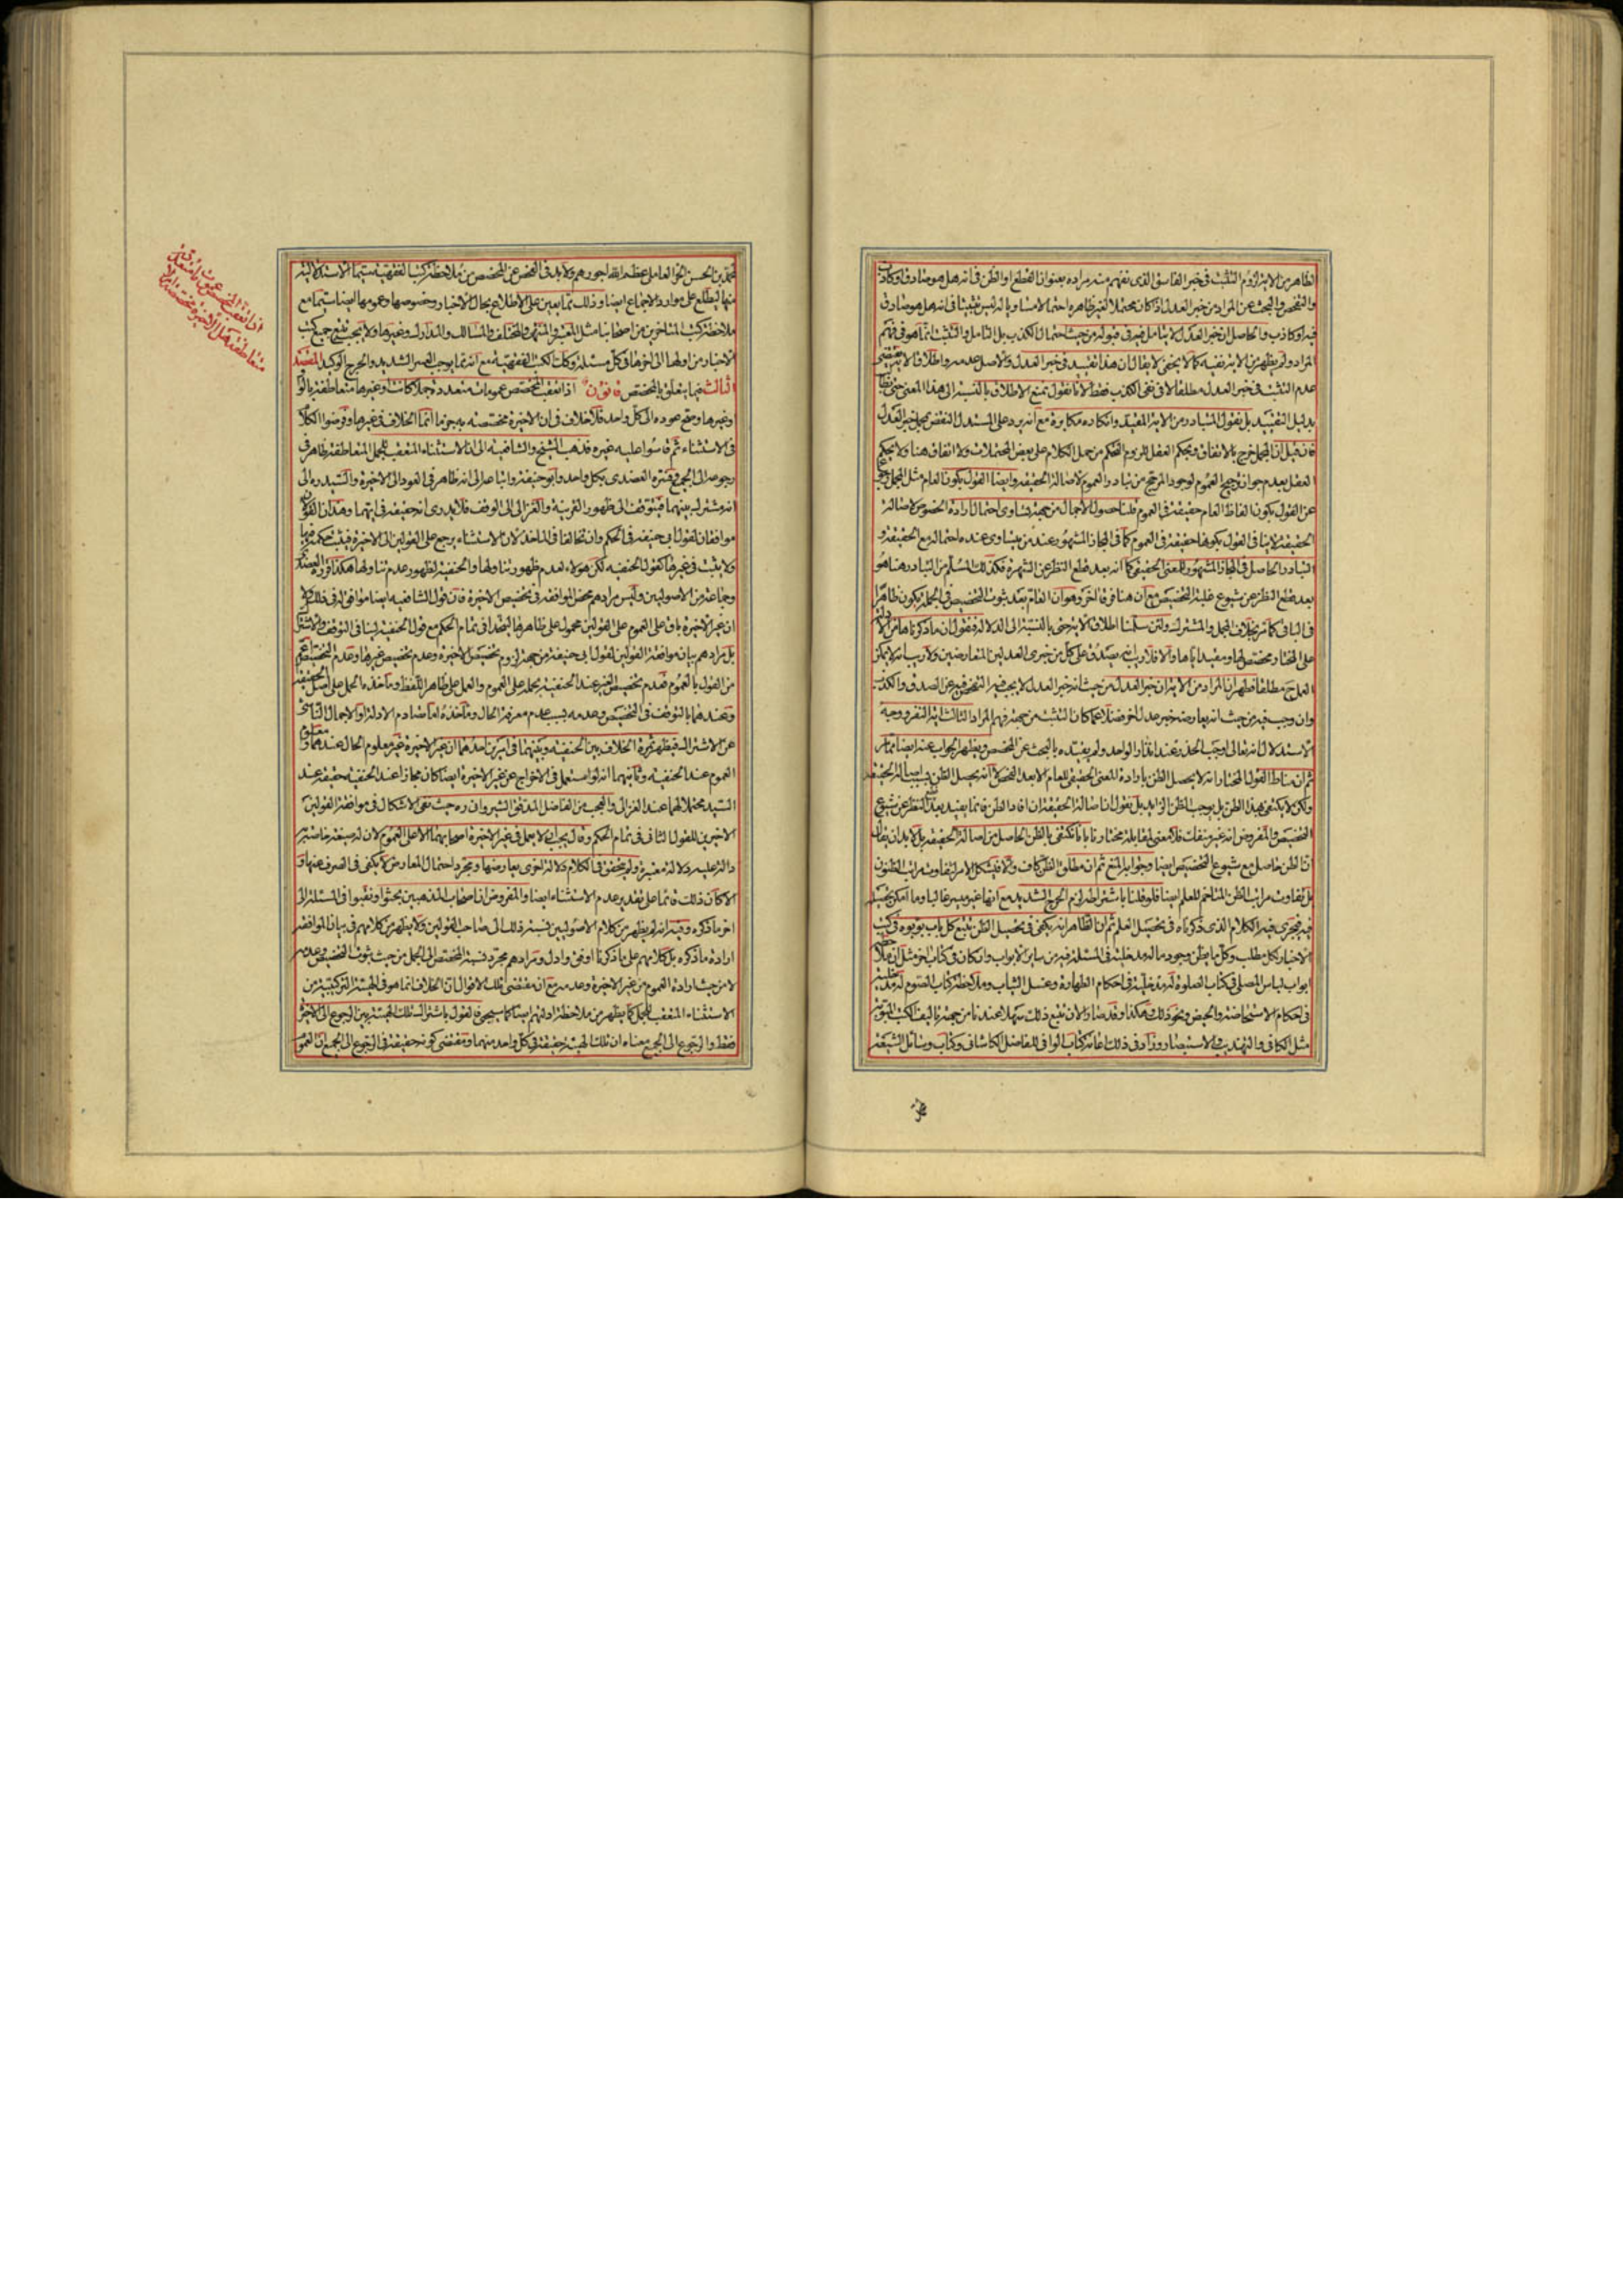 الظاهر من الآية لزوم التثبت في خبر الفاسق الذي نفهم منه مراده بعنوان القطع او الظن في انه هل هو صادق او كاذب
والتفحص والبحث عن المراد من خبر العدل اذا كان محتملا لغير ظاهره احتمالا مساويا له ليس تثبتا في انه هل هو صادق
فيه او كاذب والحاصل ان خبر العدل لا يتأمل فيه في قبوله من حيث احتمال الكذب بل التأمل والتثبت انما هو في فهم
المراد ولم يظهر من الاية نفيه كما لا يخفى لا يقال ان هذا تقييد في خبر العدل والاصل عدمه واطلاق الاية يقتضي
عدم التثبت في خبر العدل مطلقا لا في نفي الكذب فقط لانا نقول نمنع الاطلاق بالنسبة الى هذا المعنى حتى
بدليل التقييد بل نقول المتبادر من الاية المقيد وانكاره مكابرة مع انه يرد على المستدل النقض بمجمل خبر العدل
فان قيل ان المجمل خرج بالاتفاق وبحكم العقل للزوم التحكم من حمل الكلام على بعض المحتملات ولا اتفاق هنا ولا يحكم
العقل بعدم جواز ترجيح العموم لوجود المرجح من تبادر العموم لاصالة الحقيقة وايضا القول بكون العام مثل المجمل
عن القول بكون الفاظ العام حقيقة في العموم قلنا حصول الاجمال من جهة تساوي احتمال ارادة الخصوص لاصالة
الحقيقة لا ينافي القول بكونها حقيقة في العموم كما في المجاز المشهور عند من يتساوى عنده احتماله مع الحقيقة و
التبادر الحاصل في المجاز المشهور للمعنى الحقيقي كما انه بعد قطع النظر عن الشهرة فكذلك المسلم من التبادر هنا هو
بعد قطع النظر عن شيوع غلبة التخصيص مع ان هنا فرقا اخر وهو ان العام بعد ثبوت التخصيص في الجملة يكون ظاهرا
في الباقي كما مر بخلاف المجمل والمشترك ولئن سلمنا اطلاق الاية حتى بالنسبة الى الدلالة فنقول ان ما ذكرناها من الادلة
على المختار مخصص لها ومقيد اياها والا فلا ريب انه يصدق على كل من خبري العدلين المتعارضين ولا ريب انه لا يمكن
العمل مطلقا فظهر ان المراد من الاية ان خبر العدل من حيث انه خبر العدل لا يجب فيه التفحص فيه عن الصدق والكذب
وان وجب فيه من حيث انه يعارضه خبر عدل اخر فضلا عما كان التثبت من جهة فهم المراد الثالث اية النفر ووجه
الاستدلال انه تعالى اوجب الحذر عند انذار الواحد ولم يقيده بالبحث عن المخصص ويظهر الجواب عنه ايضا مما مر
ثم ان مناط القول المختار انه لا يحصل الظن بارادة المعنى الحقيقي للعام الا بعد الفحص لا انه يحصل الظن بسبب اصالة الحقيقة
ولكن لا يكتفى بهذا الظن بل يوجب الظن الزايد بل نقول ان اصالة الحقيقة ان افاد الظن فانما يفيد بعد النظر عن شيوع
التخصيص والمفروض انه غير منفك فلا معنى لمقابلة مختارنا بانا نكتفي بالظن الحاصل من اصالة الحقيقة بل لا بد ان يقال
ان الظن حاصل مع شيوع التخصيص ايضا وجوابه المنع ثم ان مطلق الظن كاف ولا يشكل الامر بتفاوت مراتب الظنون
بل تفاوت مراتب الظن المتاخم للعلم ايضا فلو قلنا باشتراطه لزم الحرج الشديد مع انها غير ميسر غالبا وما امكن تحصيله
فيه فيجري فيه الكلام الذي ذكرناه في تحصيل العلم ثم ان الظاهر انه يكفي في تحصيل الظن تتبع كل باب بوبوه في كتب
الاخبار لكل مطلب وكل ما يظن وجود ماله مدخلية في المسئلة فيه من ساير الابواب وان كان في كتاب اخر مثل
ابواب لباس المصلي في كتاب الصلوة له مدخلية في احكام الطهارة وغسل الثياب وملاحظة كتاب الصوم له مدخلية
في احكام الاستحاضة والحيض ونحو ذلك وهكذا وقد صار الان تتبع ذلك سهلا عندنا من جهة تاليف الكتب المبوبة
مثل الكافي والتهذيب والاستبصار وزاد في ذلك اعانة كتاب الوافي للفاضل الكاشاني وكتاب وسائل الشيعة
محمد بن الحسن الحر العاملي عظم الله اجورهم ولا بد في الفحص عن المخصص من ملاحظة كتب الفقهية سيما الاستدلالية
منها ليطلع على موارد الاجماع ايضا وذلك مما يعين على الاطلاع بحال الاخبار وخصوصها وعمومها ايضا سيما مع
ملاحظة كتب المتاخرين من اصحابنا مثل المعتبر والمنتهى والمختلف والمسالك والمدارك وغيرها ولا يجب تتبع جميع كتب
الاخبار من اولها الى اخرها في كل مسئلة وكذلك الكتب الفقهية مع انه مما يوجب العسر الشديد والحرج الوكيد المقصد
الثالث فيما يتعلق بالمخصص قانون اذا تعقب المخصص عمومات متعددة جملا كانت او غيرها متعاطفة بالواو
وغيرها وصح عوده الى كل واحد فلا خلاف في ان الاخيرة مخصصة به جزما انما الخلاف في غيرها وفرضوا الكلام
في الاستثناء ثم قاسوا عليه غيره فذهب الشيخ والشافعية الى ان الاستثناء المتعقب للجمل المتعاطفة ظاهر في
رجوعه الى الجميع وفسره العضدي بكل واحد وابو حنيفة واتباعه الى انه ظاهر في العود الى الاخيرة والسيد ره الى
انه مشترك بينهما فيتوقف الى ظهور القرينة والغزالي الى الوقف فلا يدري انه حقيقة في ايهما وهذان القولان
موافقان لقول ابي حنيفة في الحكم وان تخالفا في الماخذ لان الاستثناء يرجع على القولين الى الاخيرة فيثبت حكمه فيها
ولا يثبت في غيرها كقول الحنفية لكن هؤلاء لعدم ظهور تناولها والحنفية لظهور عدم تناولها هكذا قرره العضدي
وجماعة من الاصوليين وليس مرادهم محض الموافقة في تخصيص الاخيرة فان قول الشافعية ايضا موافق له في ذلك
ان غير الاخيرة باق على العموم على القولين محمول على ظاهرها ليتحدا في تمام الحكم مع قول الحنفية لينافي التوقف والاشتراك
بل مرادهم بيان موافقة القولين لقول ابي حنيفة من جهة لزوم تخصيص الاخيرة وعدم تخصيص غيرها وعدم التخصيص اعم
من القول بالعموم فعدم تخصيص الغير عند الحنفية بحمله على العموم والعمل على ظاهر اللفظ وماخذه الحمل على اصل الحقيقة
وعندهما بالتوقف في التخصيص وعدمه بسبب عدم معرفة الحال وماخذه اما تصادم الادلة او الاجمال الناشئ
عن الاشتراك فيظهر ثمرة الخلاف بين الحنفية وبينهما في امرين احدهما ان غير الاخيرة غير معلوم الحال عندهما ومعلوم
العموم عند الحنفية وثانيهما انه لو استعمل في الاخراج عن غير الاخيرة ايضا كان مجازا عند الحنفية حقيقة عند
السيد محتملا لهما عند الغزالي والعجب من الفاضل المدقق الشيرواني ره حيث نفى الاشكال في موافقة القولين
الاخيرين للقول الثاني في تمام الحكم وقال يجب ان لا يعمل في غير الاخيرة اصحابهما الا على العموم لان له صيغة خاصة به
دالة عليه دلالة معتبرة ولم يتحقق في الكلام دلالة اخرى يعارضها ومجرد احتمال المعارض لا يكفي في الصرف عنها و
الا كان ذلك قائما على تقدير عدم الاستثناء ايضا والمفروض ان اصحاب المذهبين بحثوا ونقبوا في المسئلة الى
اخر ما ذكره وفيه انه لم يظهر من كلام الاصوليين نسبة ذلك الى صاحب القولين ولا يظهر من كلامهم في بيان الموافقة
ارادة ما ذكره بل كلامهم على ما ذكرنا اوفق وادل ومرادهم مجرد نسبة المخصص الى الجمل من حيث ثبوت التخصيص وعدمه
لا من حيث ارادة العموم من غير الاخيرة وعدمه مع ان مقتضى تلك الاقوال ان الخلاف انما هو في الهيئة التركيبية من
الاستثناء المتعقب للجمل كما يظهر من ملاحظة ادلتهم ايضا كما سيجئ فالقول باشتراك تلك الهيئة بين الرجوع الى الاخيرة
فقط والرجوع الى الجميع معناه ان تلك الهيئة حقيقة في كل واحد منهما ومقتضى كونه حقيقة في الرجوع الى الجميع ان العموم
اذا تعقب المخصص عمومات متعددة
متعاطفة هل الاخيرة مخصصة ام لا